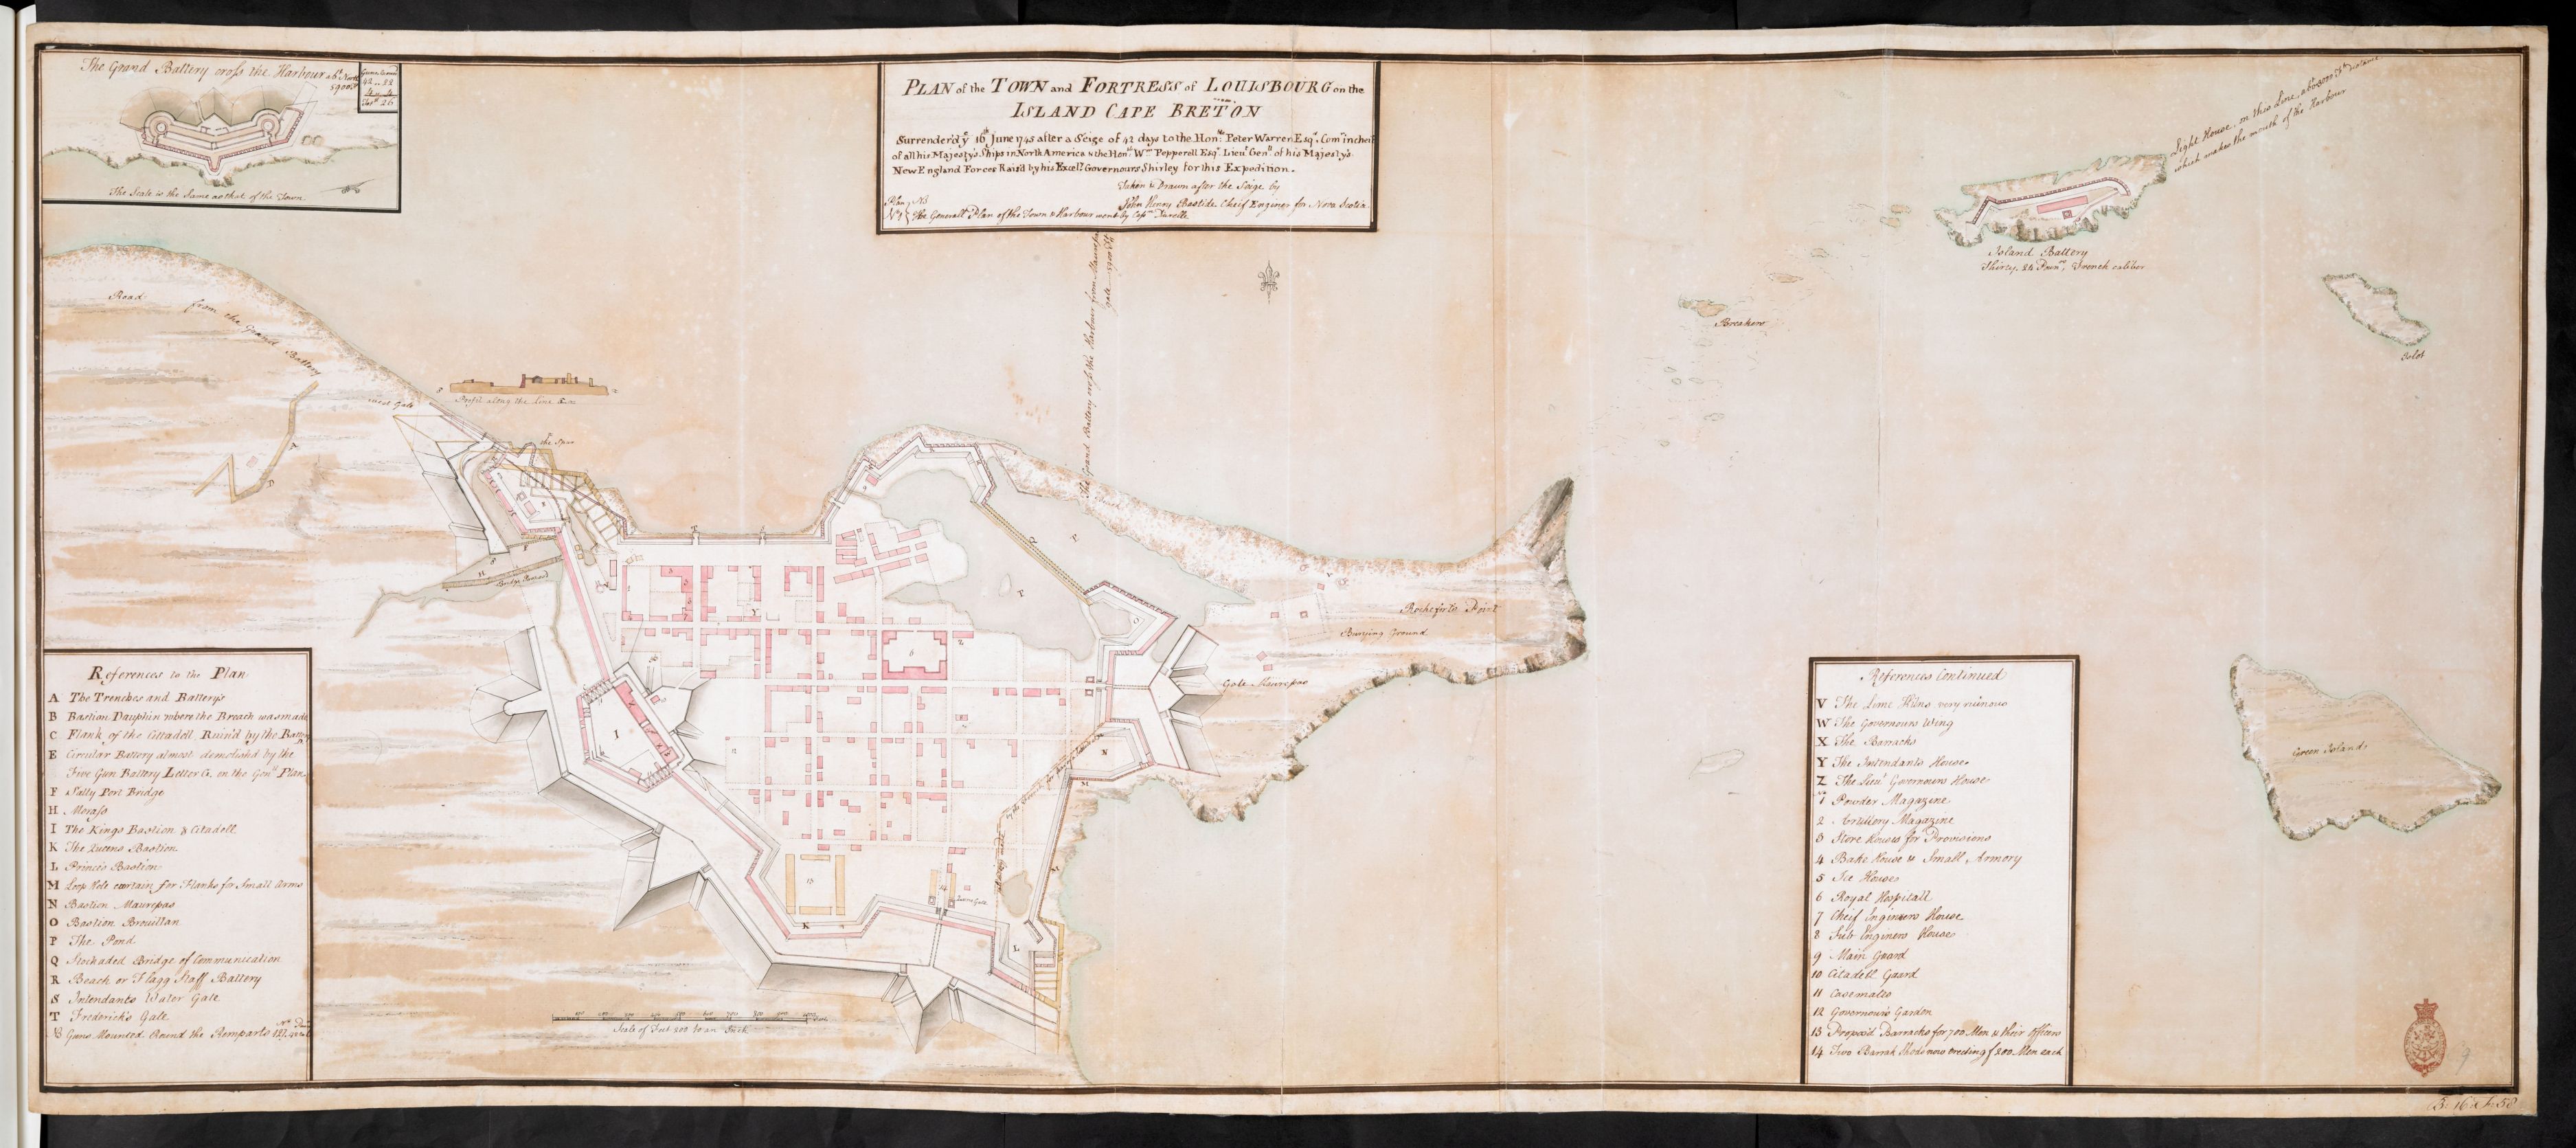 The Grand Battery cross the Harbour abt. North
5900 ft
42
26
The Scale is the Same as that of the Town
PLAN of the TOWN and FORTRESS of LOUISBOURG on the
ISLAND CAPE BRETON
Surrender'd ye. 16th June 1745 after a Seige of 42 days to the Honble. Peter Warren Esqr. Comr in cheif
of all his Majesty's Ships in North America & the Honble. Wm Pepperell Esqr. Lieut Genll. of his Majesty's
New England Forces Rais'd by his Excelly. Governour Shirley for this Expedition.
Taken & Drawn after the Seige by
John Henry Bastide Cheif Enginer for Nova Scotia
Plan NB
No 1 The Generall Plan of the Town & Harbour went by Capt. Durelle
Light House in this Line, abt 3000 Ft. distance
which makes the mouth of the Harbour
Island Battery
Thirty, 24 Poundrs, French caliber
Islot
Breakers
Green Island
Road from the Grand Battery
West Gate
Profil along the Line
the Spur
The Grand Battery cross the Harbour from Maurepas
gate 5900 Ft.
Rocheforts Point
Burying Ground
Gate Maurepas
Queens Gate
Scale of Feet 200 to an Inch
References to the Plan
A The Trenches and Battery's
B Bastion Dauphin where the Breach was made
C Flank of the Cittadell Ruin'd by the Battery
D
E Circular Battery almost demolish'd by the
Five Gun Battery Letter G. on the Genll Plan
F Sally Port Bridge
H Morass
I The Kings Bastion & Citadell
K The Queens Bastion
L Princes Bastion
M Loop hole curtain for Flanks for Small Arms
N Bastion Maurepas
O Bastion Brouillan
P The Pond
Q Stockaded Bridge of Communication
R Beach or Flagg Staff Battery
S Intendants Water Gate
T Fredericks Gate
Guns Mounted Round the Remparts
References Continued
V The Lime Kilns very ruinous
W The Governours Wing
X The Barracks
Y The Intendants House
Z The Lieut Governours House
No 1 Powder Magazine
2 Artillery Magazine
3 Store Houses for Provisions
4 Bake House & Small Armory
5 Ice Houses
6 Royal Hospitall
7 Cheif Inginers House
8 Sub Enginers House
9 Main Guard
10 Citadell Guard
11 Casemates
12 Governours Garden
13 Propos'd Barracks for 700 Men & their Officers
14 Two Barrak Sheds now erecting for 200 Men each